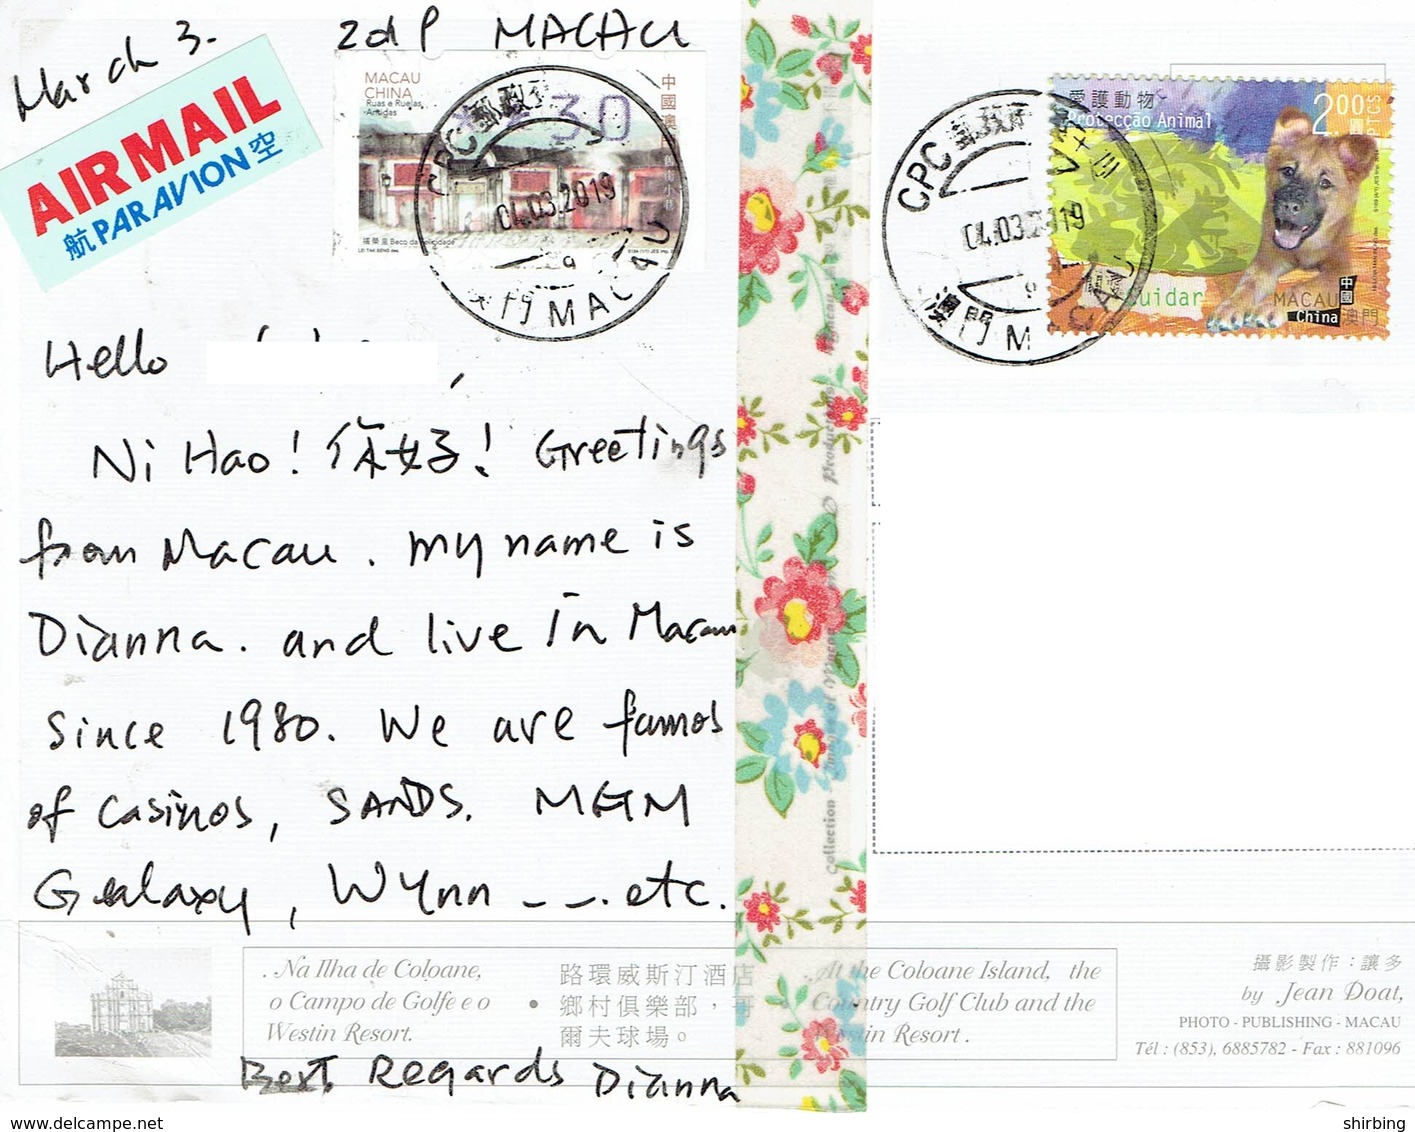 March 3.
MACAU
AIR MAIL
航 PAR AVION 空
MACAU
CHINA
Ruas e Ruelas
Antigas
30
04.03.2019
MACAU
福榮里 Beco da Felicidade
CPC 郵政
04.03.2019
澳門 MACAU
愛護動物
Protecção Animal
2.00
PTCS
Cuidar
MACAU
China
中國
澳門
Hello ,
Ni Hao! 你好! Greetings
from Macau. my name is
Dianna. and live in Macau
since 1980. We are famos
of casinos, SANDS. MGM
Galaxy, Wynn _ _ . etc.
. Na Ilha de Coloane,
o Campo de Golfe e o
Westin Resort.
• 路環威斯汀酒店
鄉村俱樂部，哥
爾夫球場。
• At the Coloane Island, the
Country Golf Club and the
Westin Resort .
攝影製作：讓多
by Jean Doat,
PHOTO - PUBLISHING - MACAU
Tél : (853), 6885782 - Fax : 881096
Best Regards Dianna
shirbing